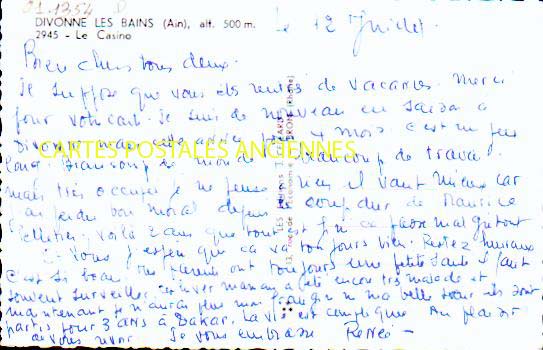 01.1254
DIVONNE LES BAINS (Ain), alt. 500 m.
2945 - Le Casino
Le 12 Juillet.
Bien chers tous deux.
Je suppose que vous êtes rentrés de vacances. Merci
pour votre carte. Je suis de nouveau en saison à
Divonne mais cette année pour 4 mois c'est un peu
long. Beaucoup de monde beaucoup de travail
mais très occupée je ne pense rien il vaut mieux car
ai perdu bon moral depuis le de Maurice
Pelletier. Voilà 2 ans que tout est fini ce passe malgré tout
Et vous j'espère que ça va toujours bien. Restez heureux
c'est si beau. Mes parents ont toujours une petite santé il faut
souvent surveiller. Cet hiver maman a été encore très malade et
maintenant je n'aurais plus mon frangin ni ma belle soeur ils sont
partis pour 3 ans à Dakar. La vie est compliquée Au plaisir
de vous revoir. Je vous embrasse Renée -
CARTES POSTALES ANCIENNES